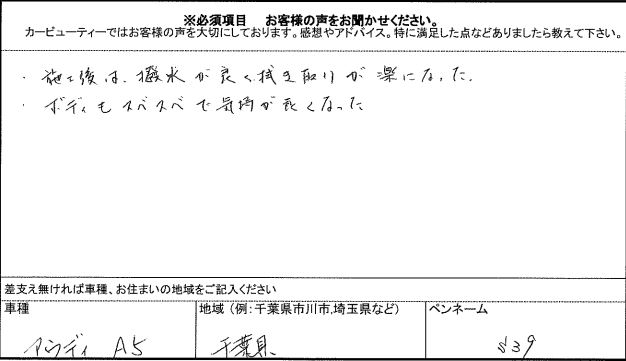 ※必須項目 お客様の声をお聞かせください。
カービューティーではお客様の声を大切にしております。感想やアドバイス。特に満足した点などありましたら教えて下さい。
・施工後は、撥水が良く拭き取りが楽になった。
・ボディもスベスベで気持が良くなった
差支え無ければ車種、お住まいの地域をご記入ください
車種 地域(例:千葉県市川市,埼玉県など) ペンネーム
アウディ A5 千葉県 S39